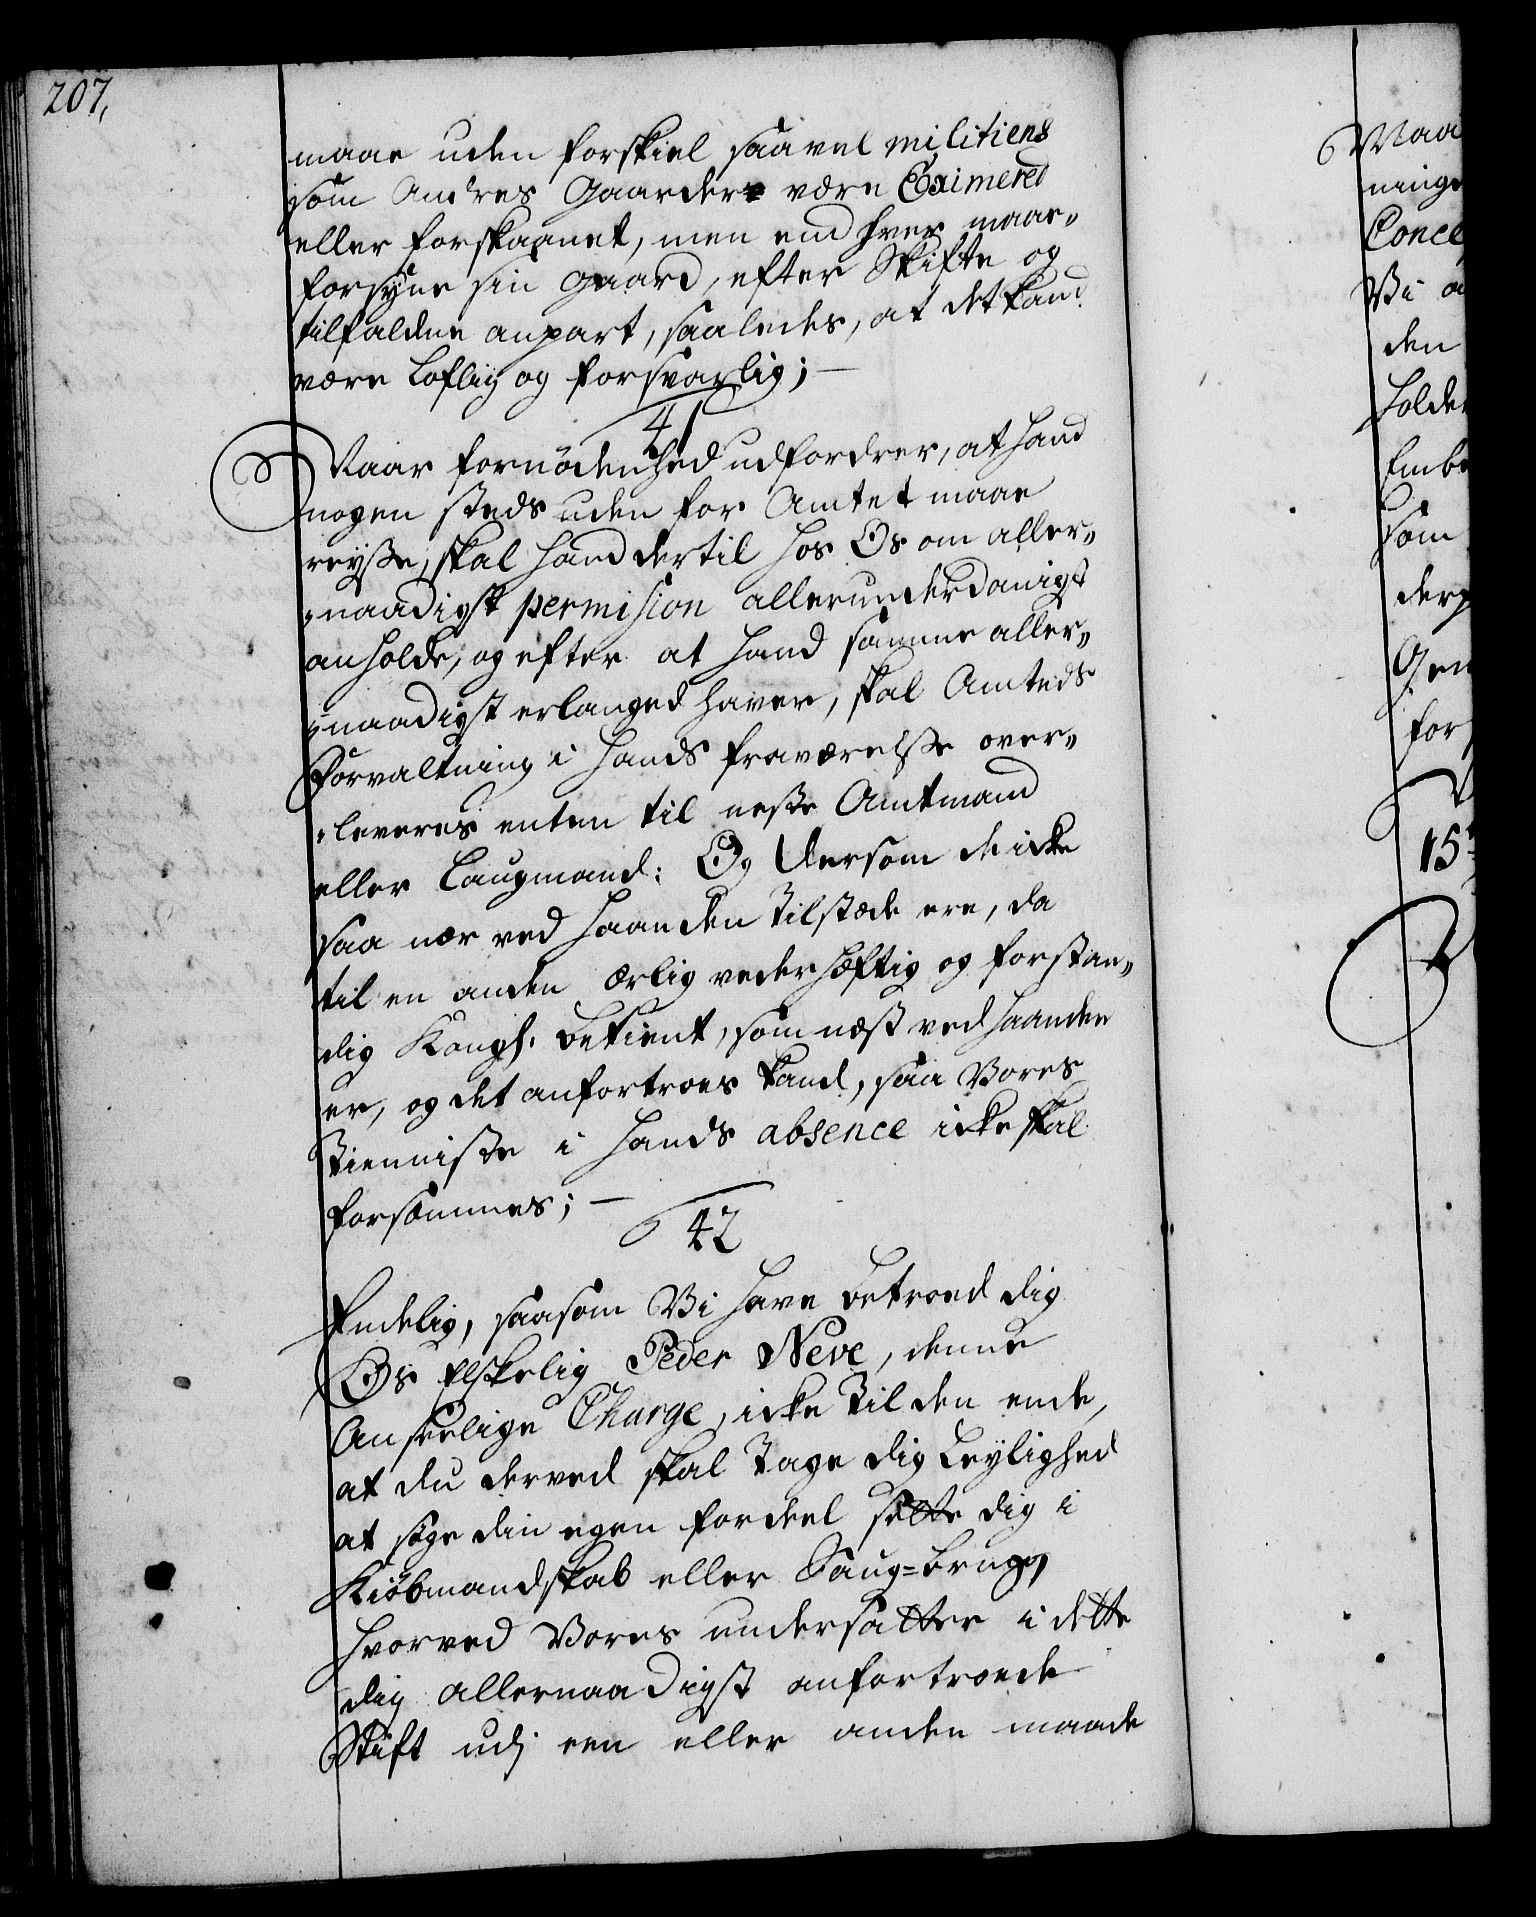 207,
maae uden forskiel saavel militiens
som Andres Gaarder være Eximered
eller forskaanet, men end hver maae
forsÿne sin gaard, efter Skifte og
tilfaldne anpart, saaledes, at det kand
være loflig og forsvarlig; —
41
Naar fornödenhed udfordrer, at hand
nogen steds uden for Amtet maae
reyse, skal hand dertil hos Os om aller-
naadigst permision allerunderdanigst
anholde, og efter at hand samme aller-
naadigst erlanged haver, skal Amtets
Forvaltning i hands fraværelse over-
leveres enten til neste Amtmand
eller Laugmand: Og dersom de icke
saa nær ved haanden tilstæde ere, da
til en anden ærlig vederhæftig og forstan-
dig Kongl. betient, som næst ved haanden
er, og det anfortroes kand, saa Vores
tienniste i hands absence icke skal
forsömmes; —
42
Endelig, saasom Vi have betroed dig
Os Elskelig Peder Neve, denne
Anseelige Charge, icke til den ende,
at du derved skal tage dig leylighed
at söge din egen fordeel sette dig i
Kiöbmandskab eller Saug=brug,
hvorved Vores undersatter i dette
dig allernaadigst anfortroede
Stift udj een eller anden maade
Maa
ninge
Conce
Vi a
den
holde
Embe
som
derp
Gen
for
15